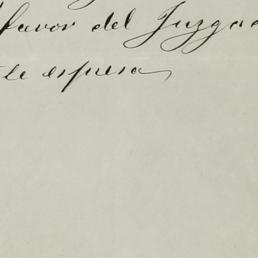 favor del Juzgad
le espresa